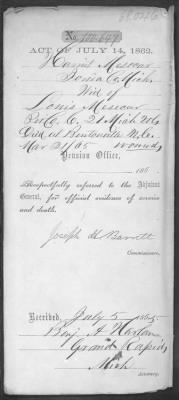 No. 100.649
ACT OF JULY 14, 1862.
Ionia Co Mich
Wid of
Louis
Pvt Co. C. 21 Mich Vols
Died at Bentonville N.C.
Mar 21/65 wounds
Pension Office,
186 .
Respectfully referred to the Adjutant
General, for official evidence of service
and death.
Joseph H Barrett
Commissioner.
Received, July 5, 1865.
Benj. A
Grand Rapids
Mich
Attorney.